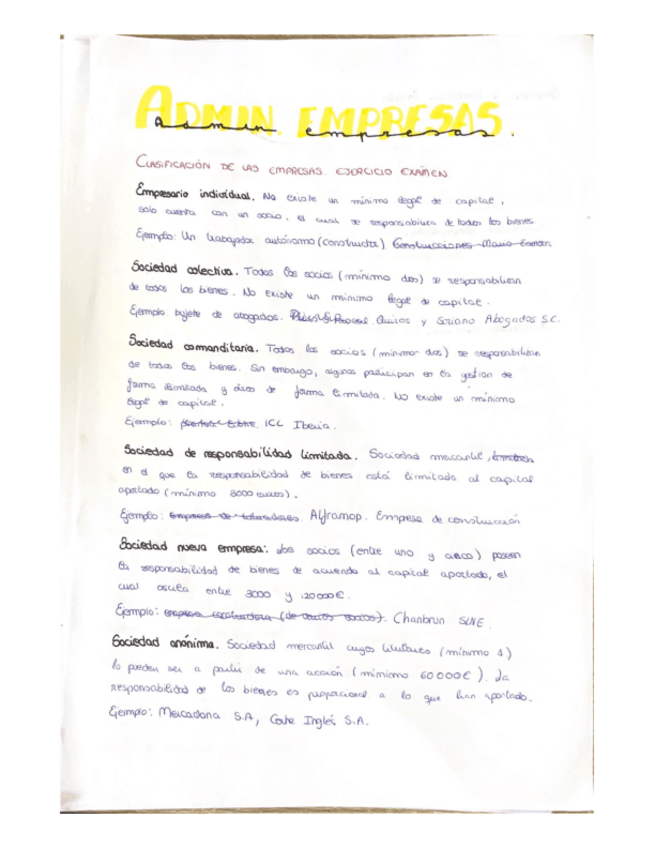 ADMIN. EMPRESAS.
Admin empresas
CLASIFICACIÓN DE LAS EMPRESAS. EJERCICIO EXÁMEN
Empresario individual. No existe un mínimo legal de capital,
solo cuenta con un socio, el cual se responsabiliza de todos los bienes.
Ejemplo: Un trabajador autónomo (constructor) Construcciones Mario
Sociedad colectiva. Todos los socios (mínimo dos) se responsabilizan
de todos los bienes. No existe un mínimo legal de capital.
Ejemplo bufete de abogados. Quiros y Soriano Abogados S.C.
Sociedad comanditaria. Todos los socios (mínimo dos) se responsabilizan
de todos los bienes. Sin embargo, algunos participan en la gestión de
forma ilimitada y otros de forma limitada. No existe un mínimo
legal de capital.
Ejemplo: ICC Iberia.
Sociedad de responsabilidad limitada. Sociedad mercantil,
en el que la responsabilidad de bienes está limitada al capital
aportado (mínimo 3000 euros).
Ejemplo: Empresa de Alframop. Empresa de construcción
Sociedad nueva empresa: Los socios (entre uno y cinco) poseen
la responsabilidad de bienes de acuerdo al capital aportado, el
cual oscila entre 3000 y 120000€.
Ejemplo: empresa (de varios socios). Chanbrun SLNE.
Sociedad anónima. Sociedad mercantil cuyos titulares (mínimo 1)
lo pueden ser a partir de una acción (mínimo 60000€). La
responsabilidad de los bienes es proporcional a lo que han aportado.
Ejemplo: Mercadona S.A, Corte Inglés S.A.